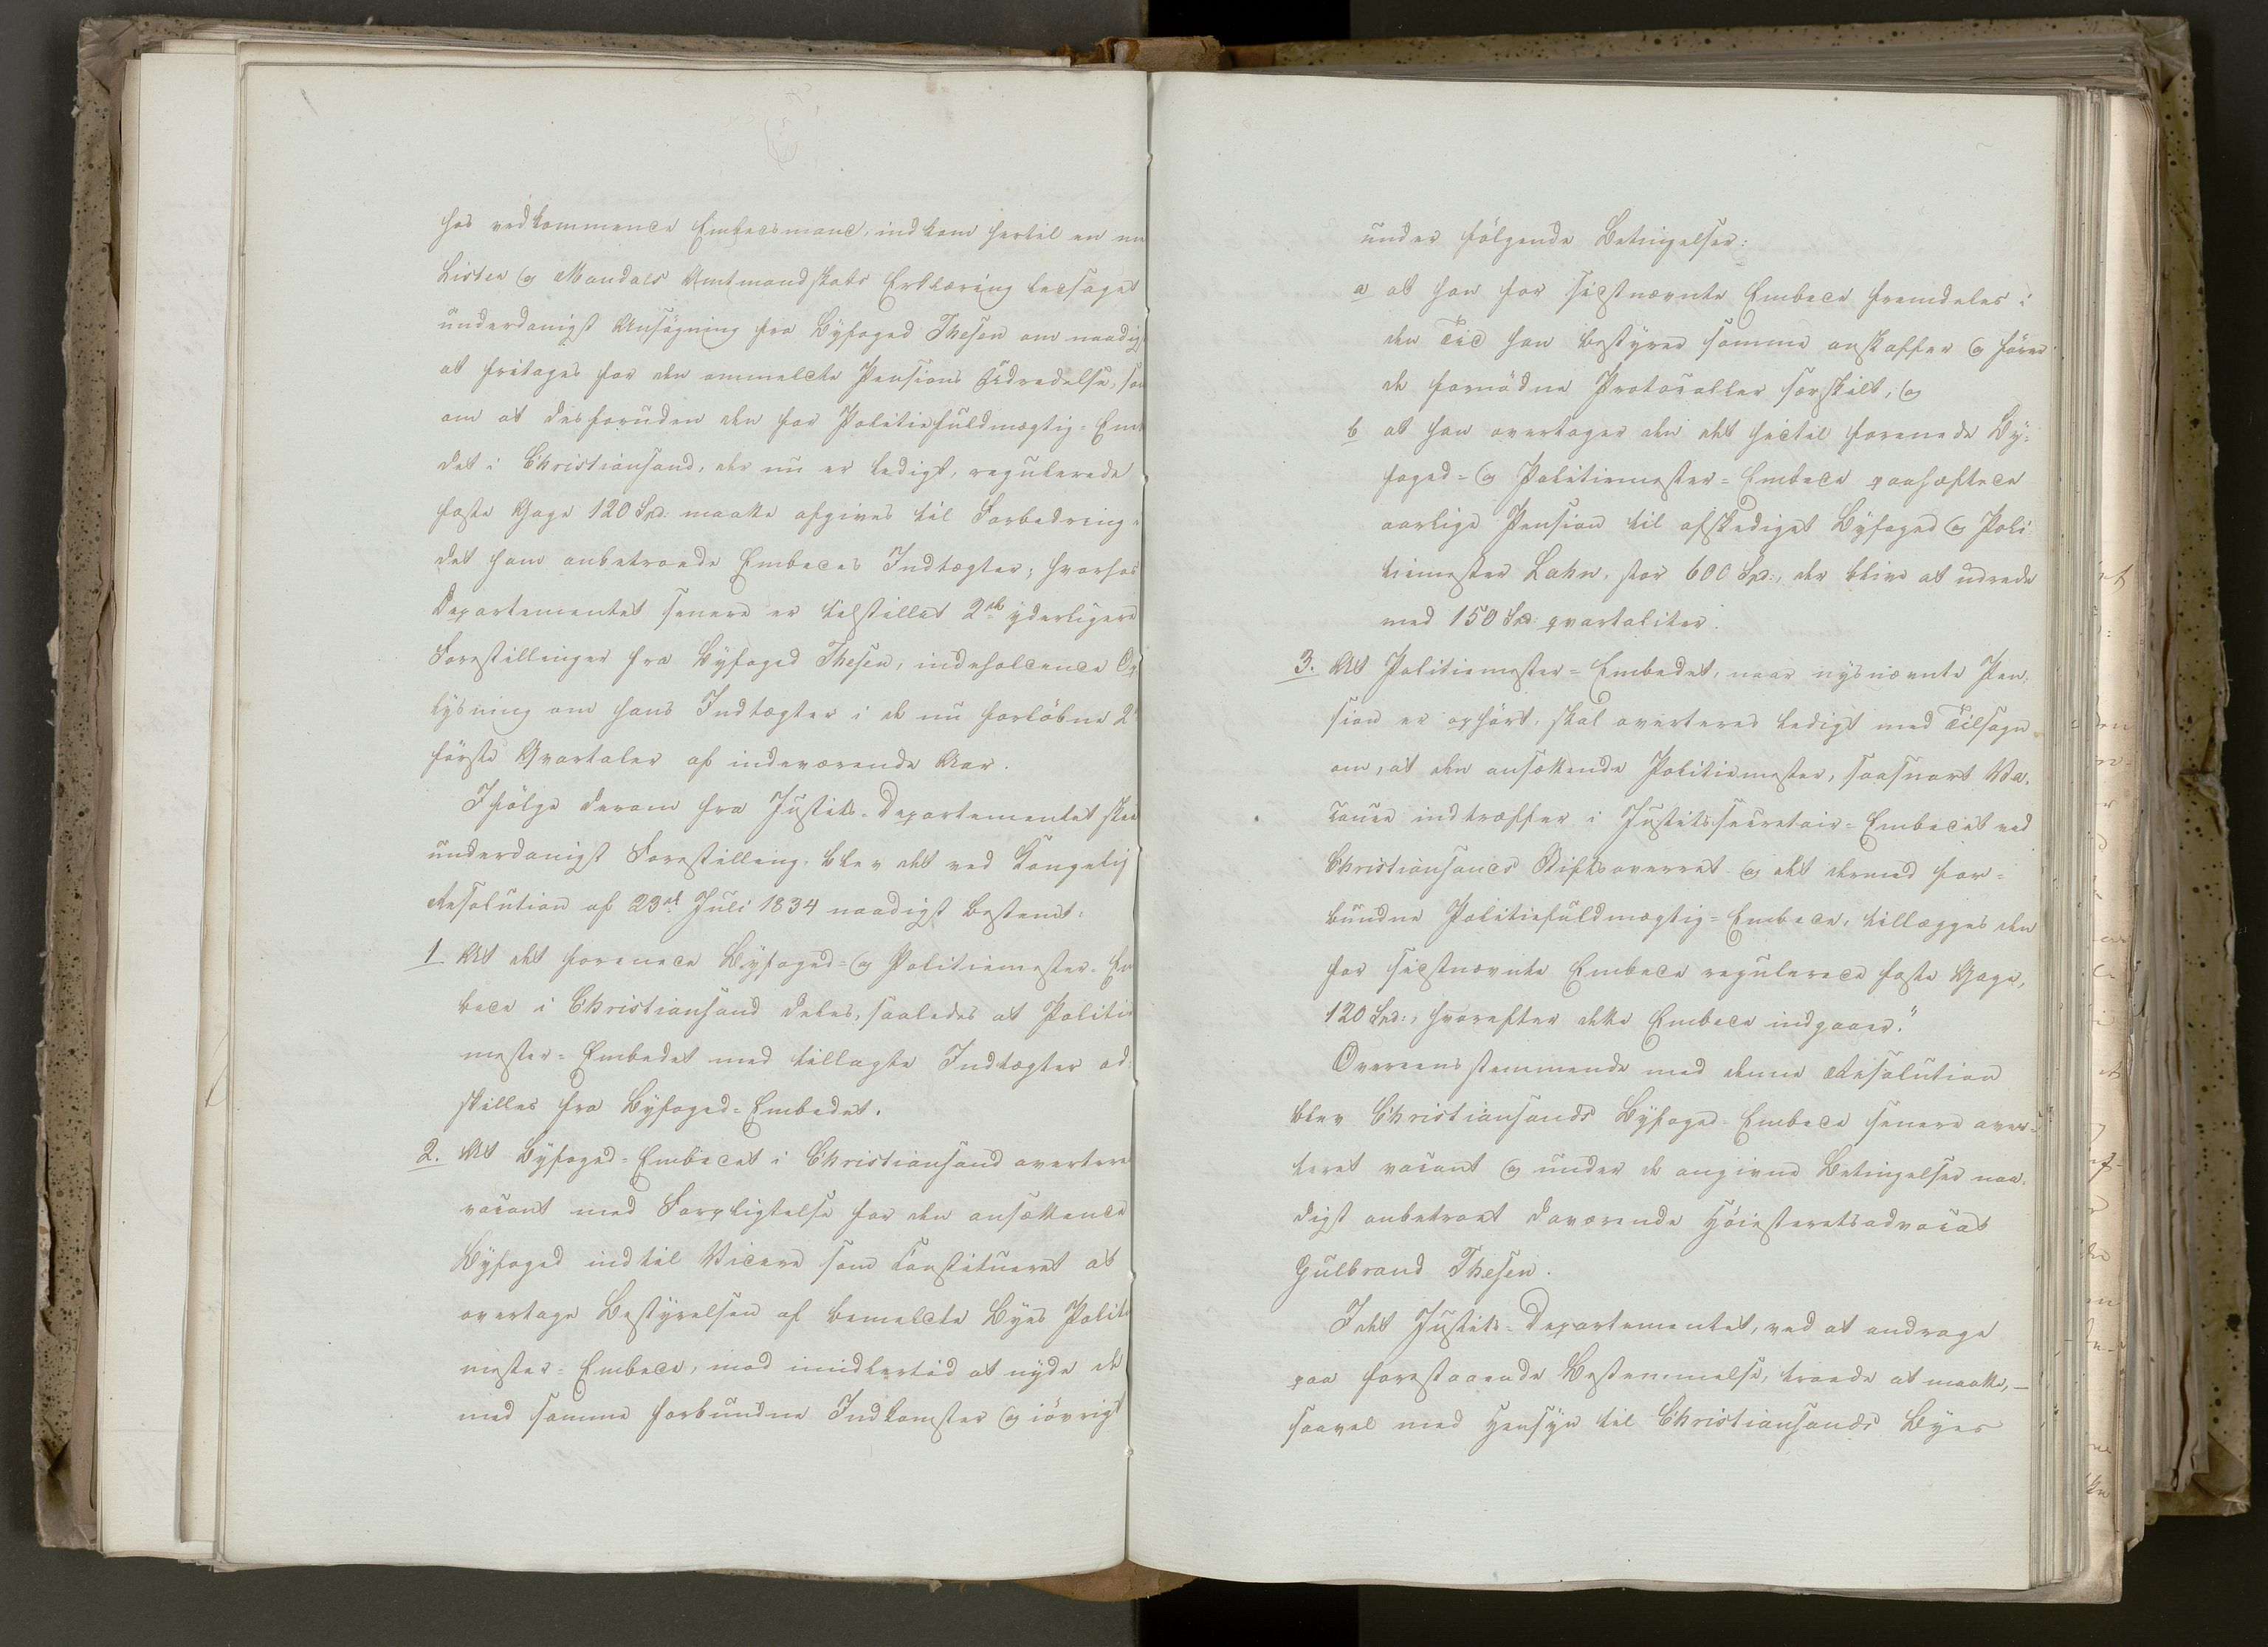 hos vedkommende Embedsmand, indkom hertil en
Lister og Mandals Amtmandskabs Erklæring ledsaget
underdanigst Ansøgning fra Byfoged Thesen om naadigst
at fritages for den ommeldte Pensions Udredelse, som
om at desforuden den for Politiefuldmægtig-Emb
det i Christiansand, der nu er ledigt, regulerede
faste Gage 120 Spd: maatte afgives til Forbedring
det ham anbetroede Embedes Indtægter; hvorhos
Departementet senere er tilstillet 2de yderligere
Forestillinger fra Byfoged Thesen, indeholdende Op
lysning om hans Indtægter i de nu forløbne 2
første Qvartaler af indeværende Aar.
Ifølge derom fra Justits-Departementet skeet
underdanigst Forestilling, blev det ved Kongelig
Resolution af 23de Juli 1834 naadigst bestemt:
1 At det forenede Byfoged- og Politiemester-Em
bede i Christiansand deles, saaledes at Politie
mester-Embedet med tillagte Indtægter ad
skilles fra Byfoged-Embedet.
2. At Byfoged-Embedet i Christiansand averteres
vacant med Forpligtelse for den ansættende
Byfoged indtil Videre som Constitueret at
overtage Bestyrelsen af bemeldte Byes Politie
mester-Embede, mod imidlertid at nyde de
med samme forbundne Indkomster og iøvrigt
under følgende Betingelser:
a at han for sidstnævnte Embede fremdeles i
den Tid han bestyrer samme anskaffer og fører
de fornødne Protocoller særskilt, og
b at han overtager den det hidtil forenede By-
foged- og Politiemester-Embede paahæftede
aarlige Pension til afskediget Byfoged og Poli-
tiemester Lahn, stor 600 Spd:, der blive at udrede
med 150 Spd: qvartaliter.
3. At Politiemester-Embedet, naar nysnævnte Pen-
sion er ophørt, skal averteres ledigt med Tilsagn
om, at den ansættende Politiemester, saasnart Va-
cance indtræffer i Justitssecretair-Embedet ved
Christiansands Stiftsoverret og det dermed for-
bundne Politiefuldmægtig-Embede, tillægges den
for sidstnævnte Embede regulerede faste Gage,
120 Spd:, hvorefter dette Embede indgaaer."
Overeensstemmende med denne Resolution
blev Christiansands Byfoged-Embede senere aver-
teret vacant og under de angivne Betingelser naa-
digst anbetroet daværende Høiesteretsadvocat
Gulbrand Thesen.
Idet Justits-Departementet, ved at andrage
paa forestaaende Bestemmelse, troede at maatte, —
saavel med Hensyn til Christiansands Byes